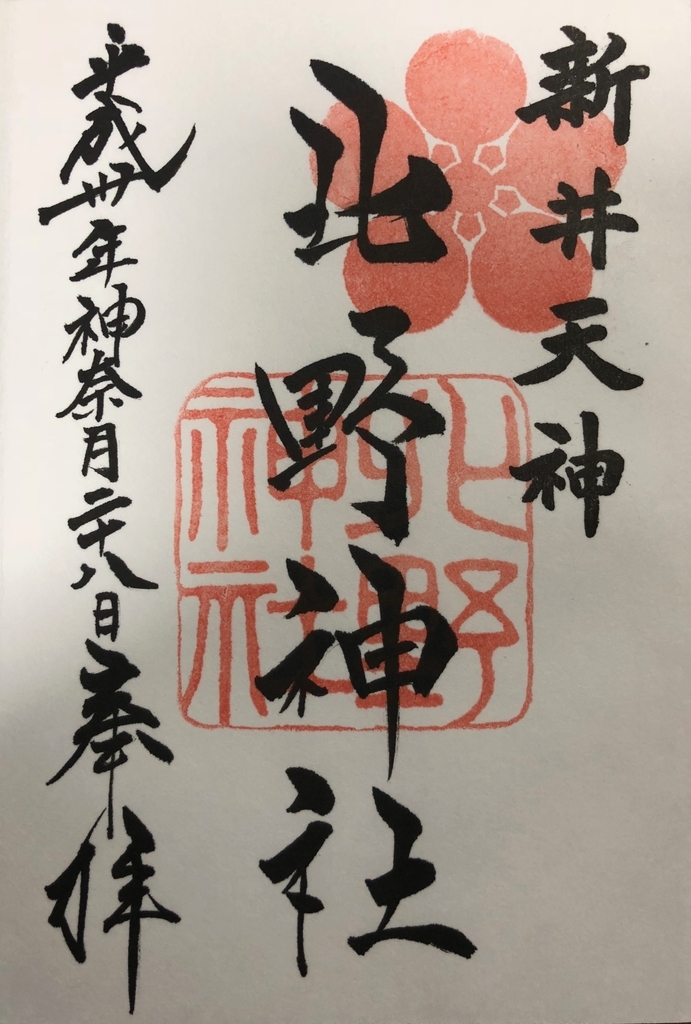 新井天神
北野神社
平成卅年神奈月二十八日奉拝
北野神社